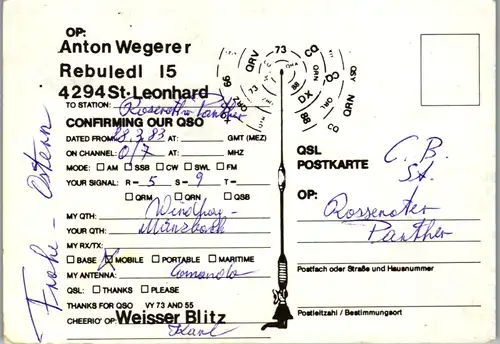 OP:
Anton Wegerer
Rebuledl 15
4294 St. Leonhard
TO STATION: Panther
CONFIRMING OUR QSO
DATED FROM: 28.3.83 AT: GMT (MEZ)
ON CHANNEL: 0/7 AT: MHZ
MODE: AM SSB CW SWL FM
YOUR SIGNAL: R - 5 S - 9 T -
QRM QRN QSB
MY QTH:
YOUR QTH: Münzbach
MY RX/TX:
BASE MOBILE PORTABLE MARITIME
MY ANTENNA:
QSL: THANKS PLEASE
THANKS FOR QSO VY 73 AND 55
CHEERIO' OP: Weisser Blitz
Karl
Frohe - Ostern
73 CQ
QRV QRN DO QSY
99 73 88
DX QRN
88
QSL
POSTKARTE
C.B.
St.
OP:
Panther
Postfach oder Straße und Hausnummer
Postleitzahl / Bestimmungsort